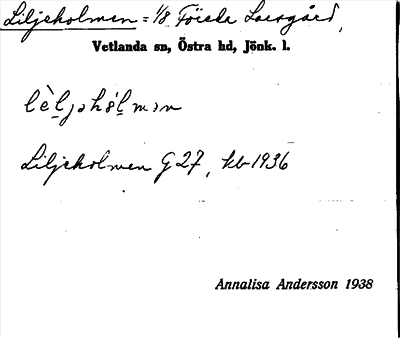 Liljeholmen = 1/8 Försla Lovsgård,
Vetlanda sn, Östra hd, Jönk. l.
Liljeholmen G 27, kb 1936
Annalisa Andersson 1938